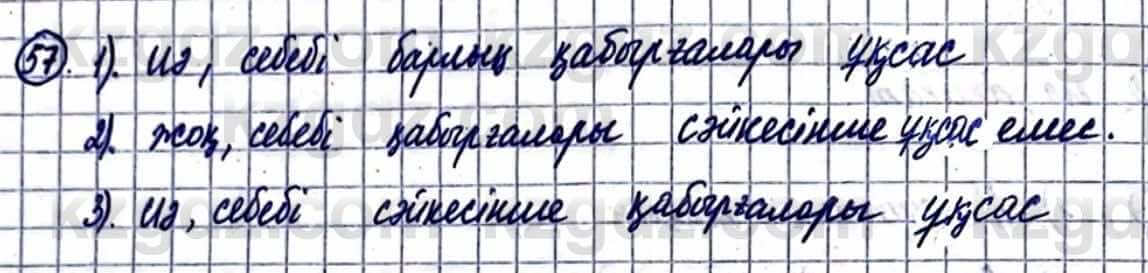 57. 1). Иә, себебі барлық қабырғалары ұқсас
2). жоқ, себебі қабырғалары сәйкесінше ұқсас емес.
3). Иә, себебі сәйкесінше қабырғалары ұқсас